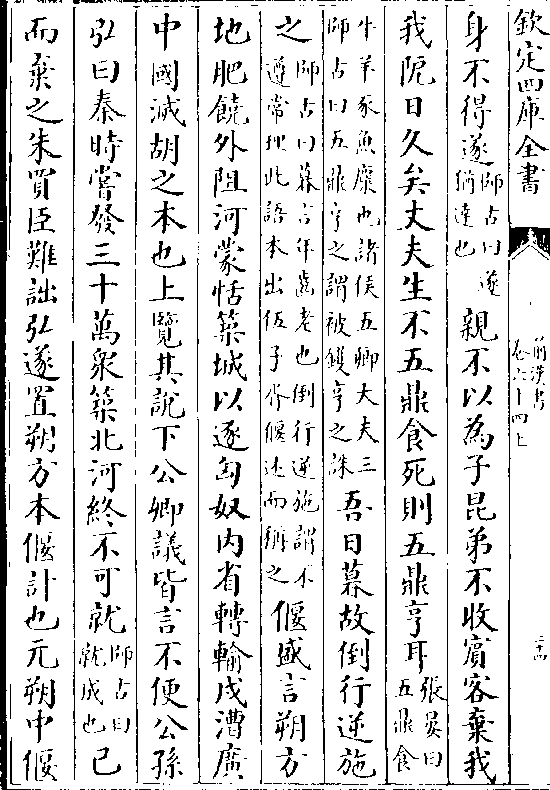 欽定四庫全書
前漢書
卷六十四上
二十四
身不得遂師古曰遂猶達也親不以為子昆弟不收賓客棄我
我阨日久矣丈夫生不五鼎食死則五鼎亨耳張晏曰五鼎食
牛羊豕魚麋也諸侯五卿大夫三師古曰五鼎亨之謂被鑊亨之誅吾日暮故倒行逆施
之師古曰暮言年齒老也倒行逆施謂不遵常理此語本出伍子胥偃述而稱之偃盛言朔方
地肥饒外阻河蒙恬築城以逐匈奴內省轉輸戍漕廣
中國滅胡之本也上覽其說下公卿議皆言不便公孫
弘曰秦時嘗發三十萬衆築北河終不可就師古曰就成也已
而棄之朱買臣難詘弘遂置朔方本偃計也元朔中偃